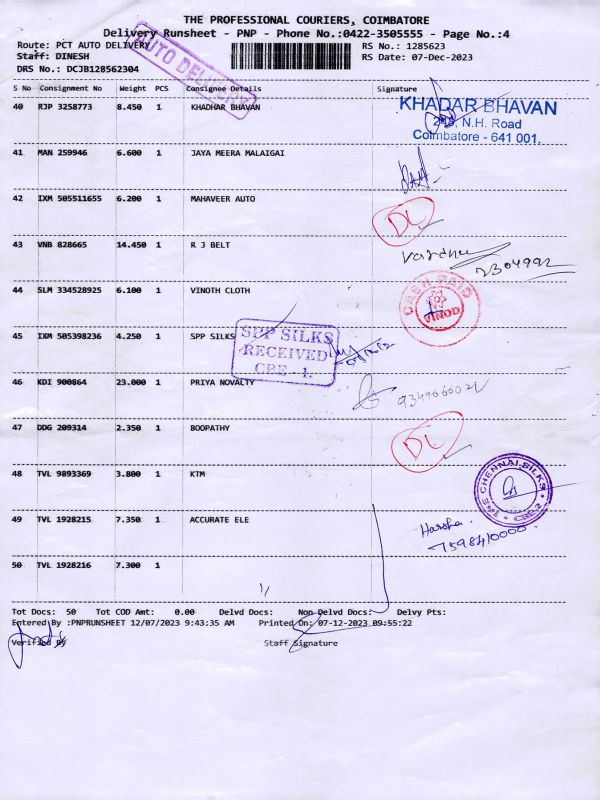 THE PROFESSIONAL COURIERS, COIMBATORE
Delivery Runsheet - PNP - Phone No.:0422-3505555 - Page No.:4
Route: PCT AUTO DELIVERY
RS No.: 1285623
Staff: DINESH
RS Date: 07-Dec-2023
DRS No.: DCJB128562304
AUTO DELIVERY
S No Consignment No Weight PCS Consignee Details Signature
40 RJP 3258773 8.450 1 KHADHAR BHAVAN
KHADAR BHAVAN
N.H. Road
Coimbatore - 641 001.
41 MAN 259946 6.600 1 JAYA MEERA MALAIGAI
42 IXM 505511655 6.200 1 MAHAVEER AUTO
DL
43 VNB 828665 14.450 1 R J BELT
44 SLM 334528925 6.100 1 VINOTH CLOTH
CASH PAID
VINOD
45 IXM 505398236 4.250 1 SPP SILKS
SPP SILKS
RECEIVED
CBE - 1.
46 KDI 900864 23.000 1 PRIYA NOVALTY
47 DDG 209314 2.350 1 BOOPATHY
DL
48 TVL 9893369 3.800 1 KTM
THE CHENNAI SILKS
CBE-2
49 TVL 1928215 7.350 1 ACCURATE ELE
Harsha
7598410000
50 TVL 1928216 7.300 1
Tot Docs: 50 Tot COD Amt: 0.00 Delvd Docs: Non Delvd Docs: Delvy Pts:
Entered By :PNPRUNSHEET 12/07/2023 9:43:35 AM Printed On: 07-12-2023 09:55:22
Verified By Staff Signature